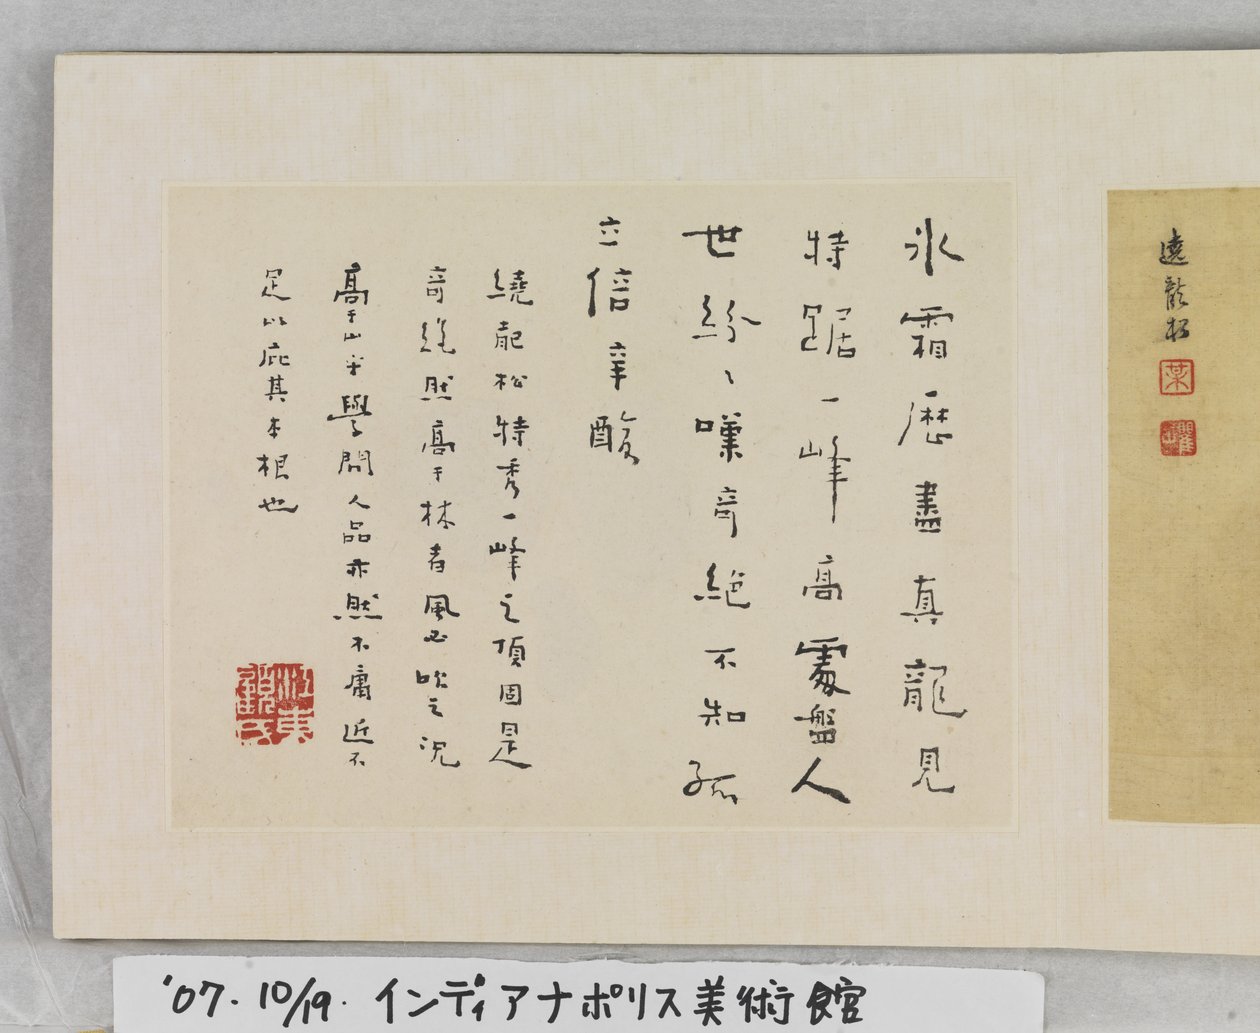 遶龍松
氷霜歴盡真龍見
特踞一峰高處盤人
世紛〻嘆奇絕不知孤
立倍辛酸
繞龍松特秀一峰之頂固是
奇絕然高于林者風必吹之況
高于山乎學問人品亦然不庸近不
足以庇其本根也
'07.10/19. インディアナポリス美術館